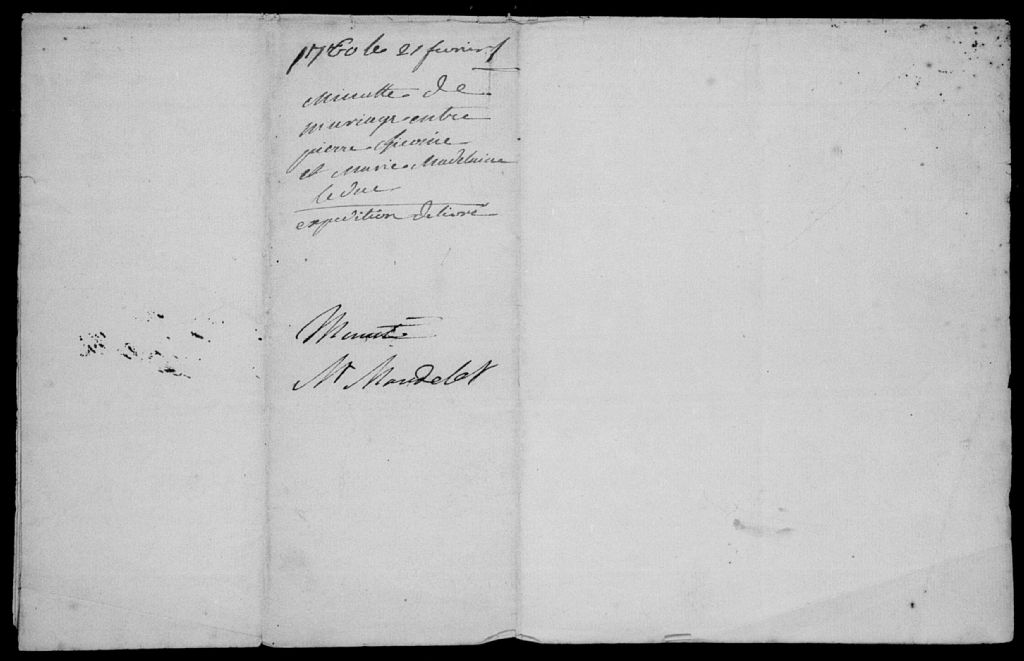 1760 le 21 fevrier
Minutte de
mariage entre
pierre
et Marie Madelaine
le duc
expedition delivré
Minut
Mr Mondelet